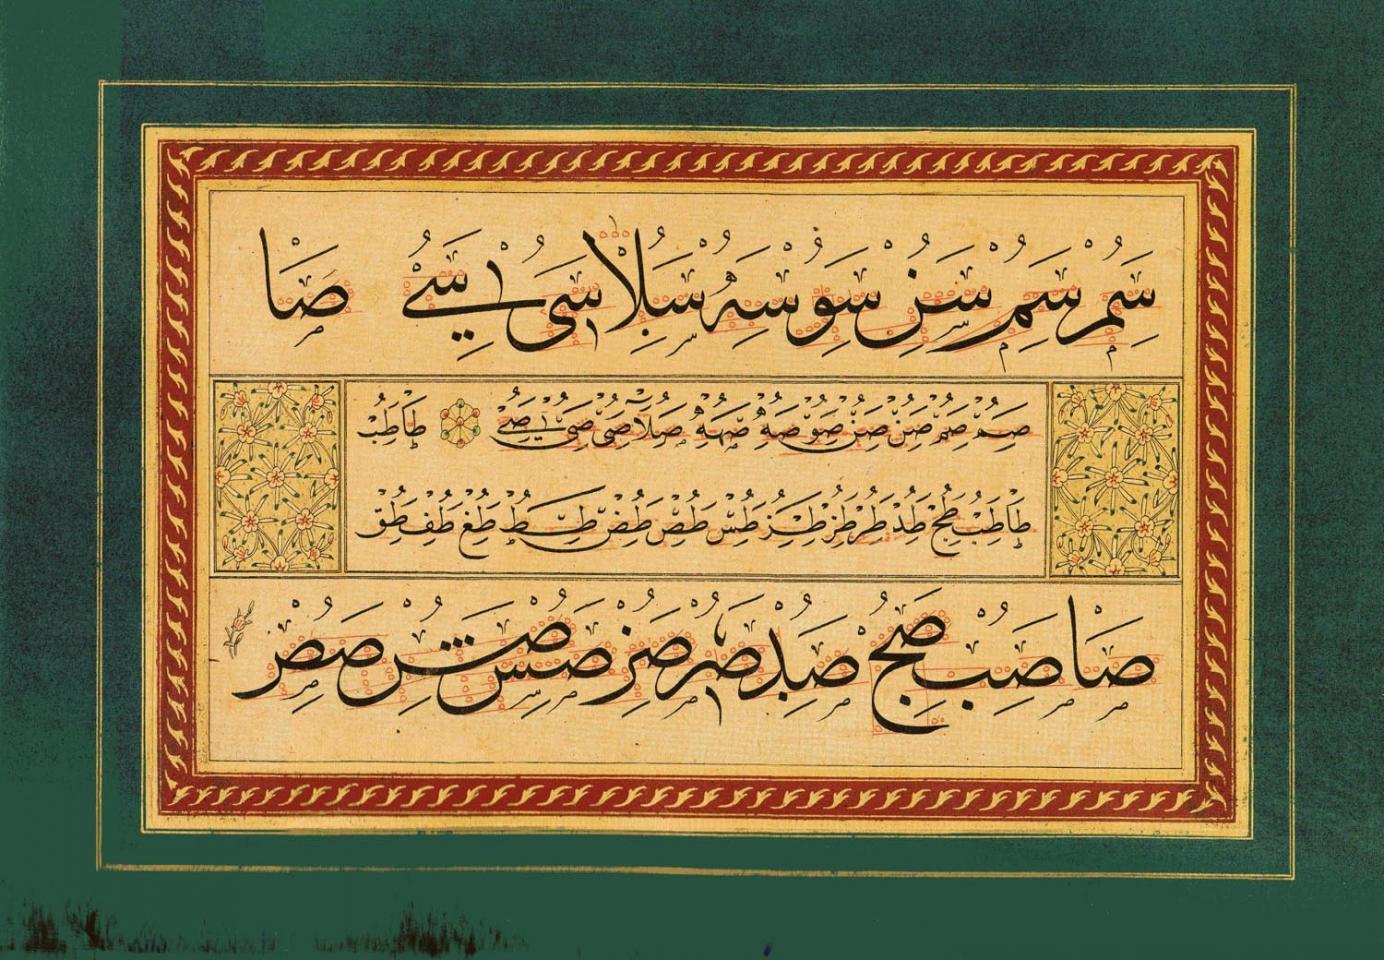 سم سم سن سو سه سلا سى سے صا
صم صم صن صن صو صه صهه صلا صى صى صے طا طب
طا طب طح طد طر طز طس طص طض طط طغ طف طق
صا صب صح صد صر صز صس صش صص